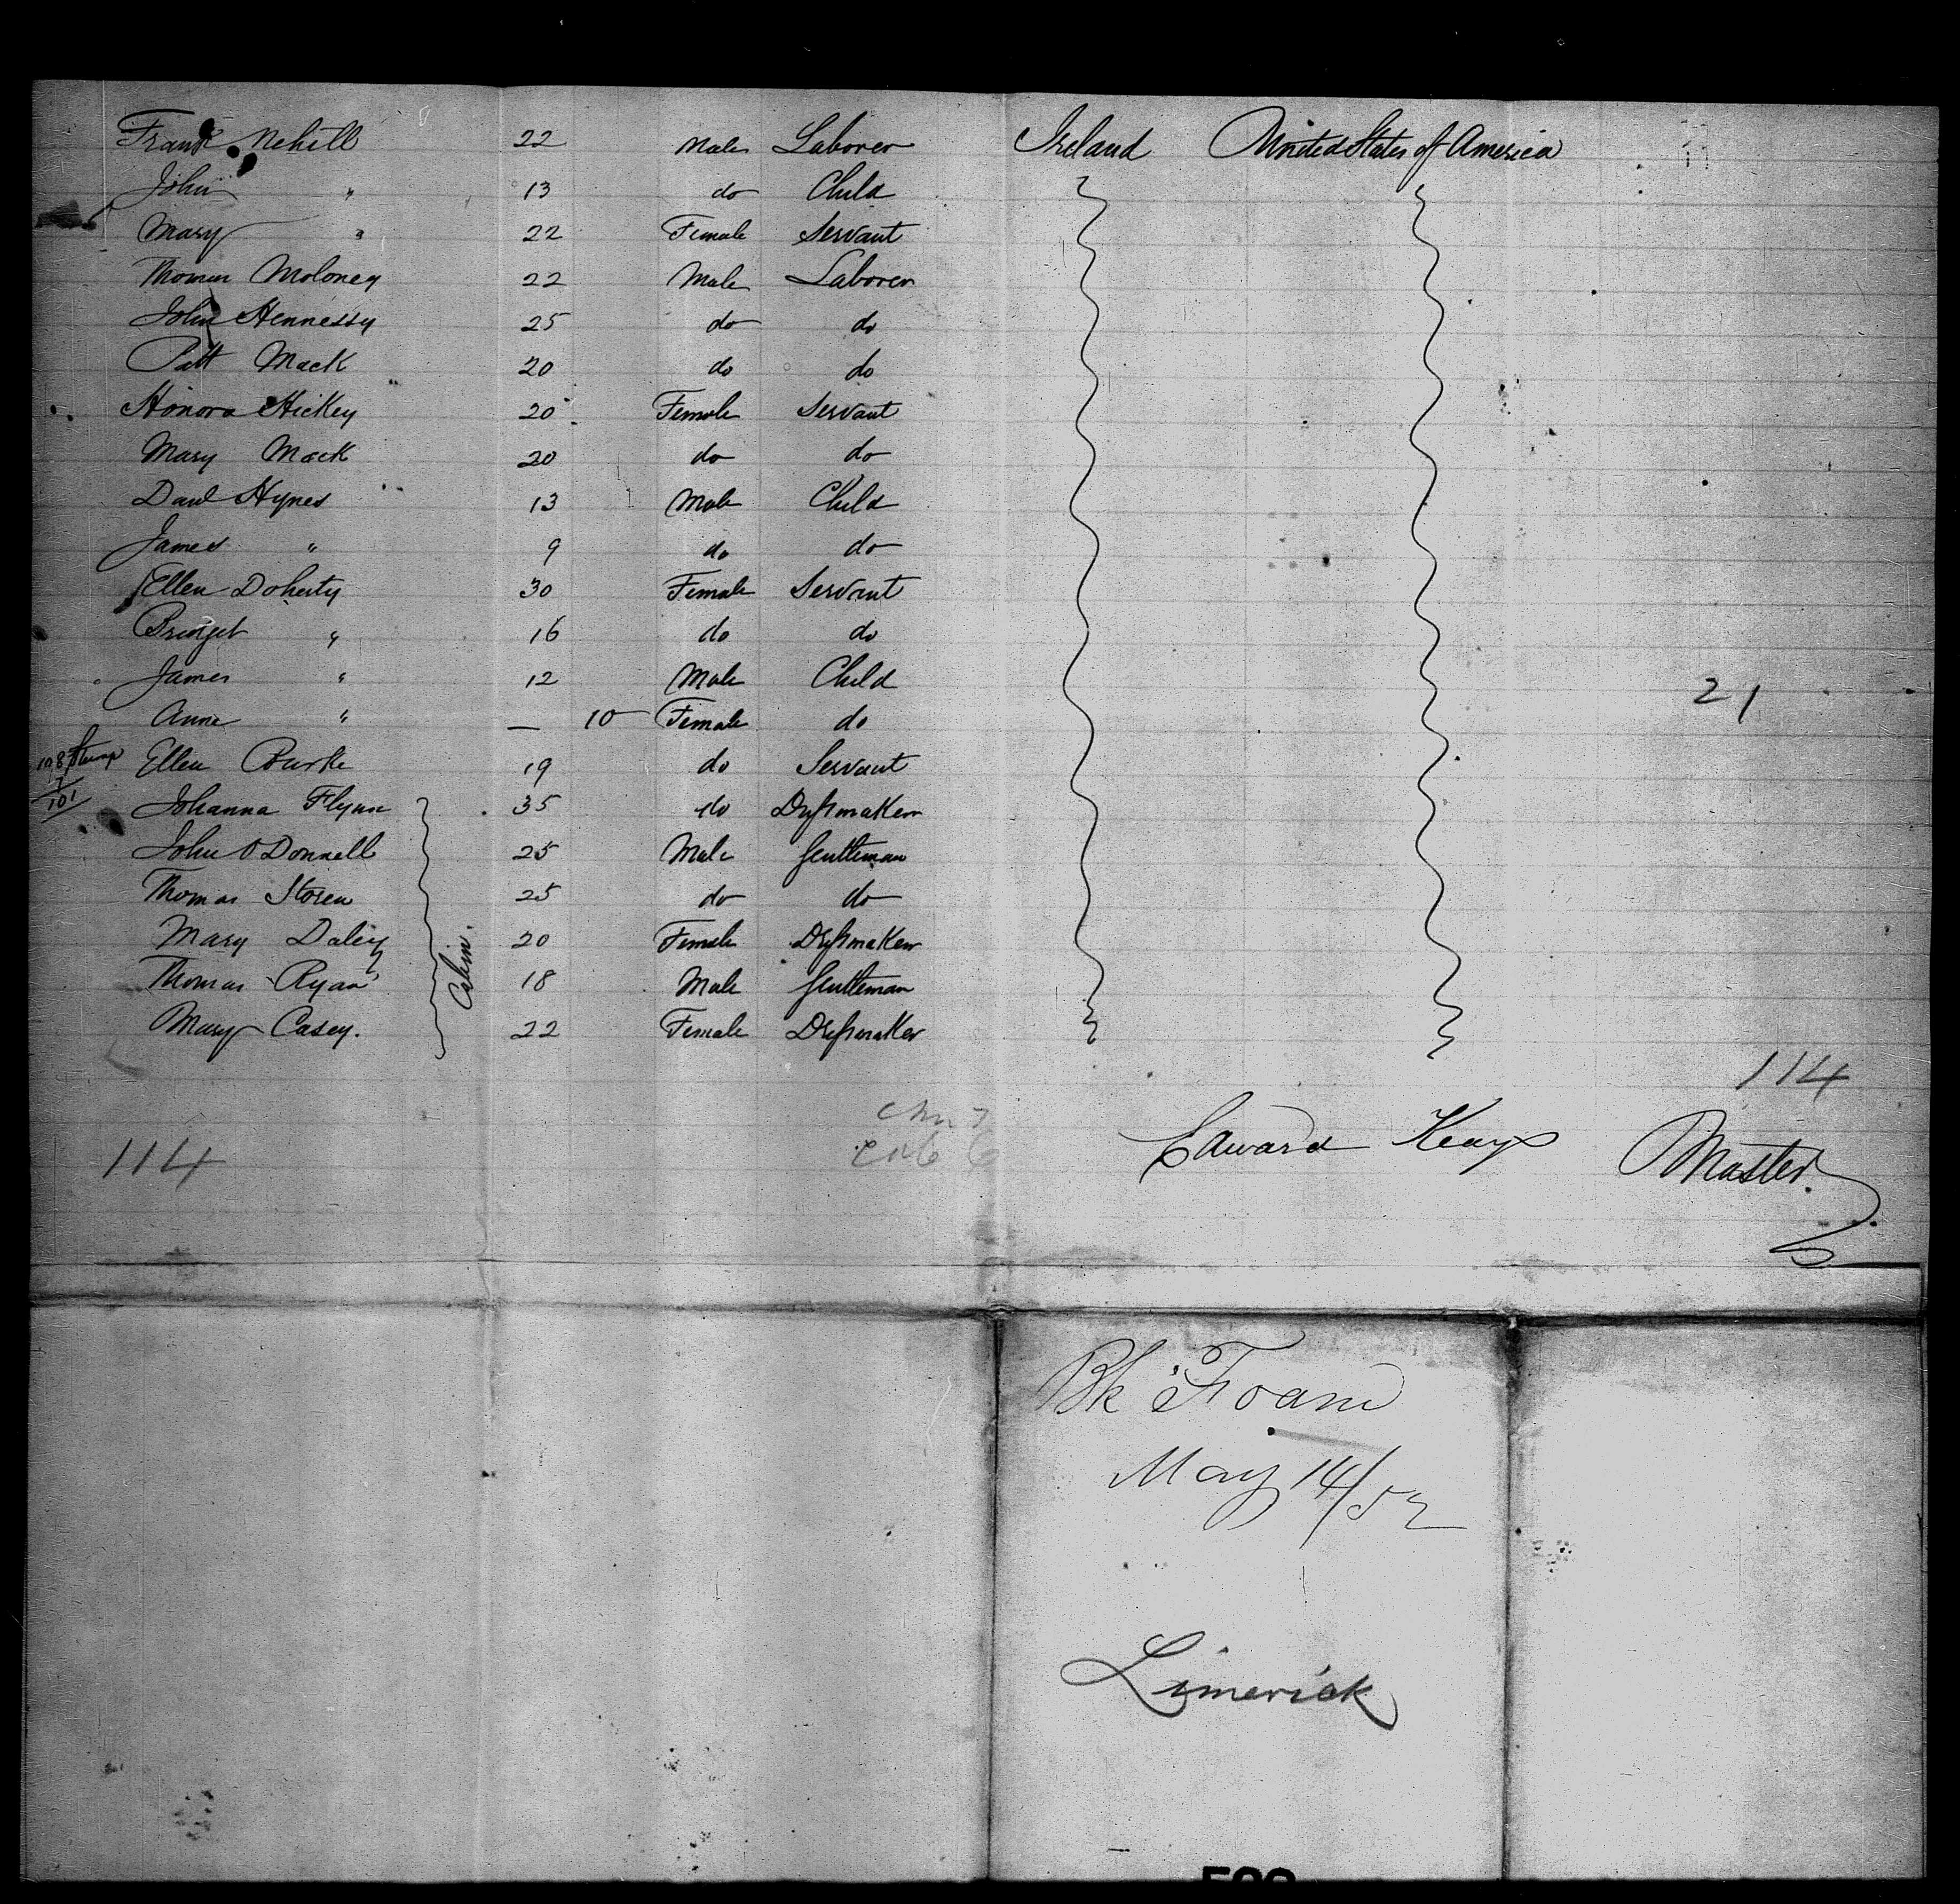 Frank Nehill 22 Male Laborer Ireland United States of America
John " 13 do Child
Mary " 22 Female Servant
Thomas Moloney 22 Male Laborer
John Hennessy 25 do do
Patt Mack 20 do do
Honora Hickey 20 Female Servant
Mary Mack 20 do do
Danl Hynes 13 Male Child
James " 9 do do
Ellen Doherty 30 Female Servant
Bridget " 16 do do
James " 12 Male Child 21
Anne " — 10 Female do
Ellen Bourke 19 do Servant
101 Johanna Flynn 35 do Dressmaker
John O Donnell 25 Male Gentleman
Thomas Storen 25 do do
Mary Daley 20 Female Dressmaker
Cabin.
Thomas Ryan 18 Male Gentleman
Mary Casey. 22 Female Dressmaker
114
114 Edward Keays Master.
Bk Foam
May 14/52
Limerick